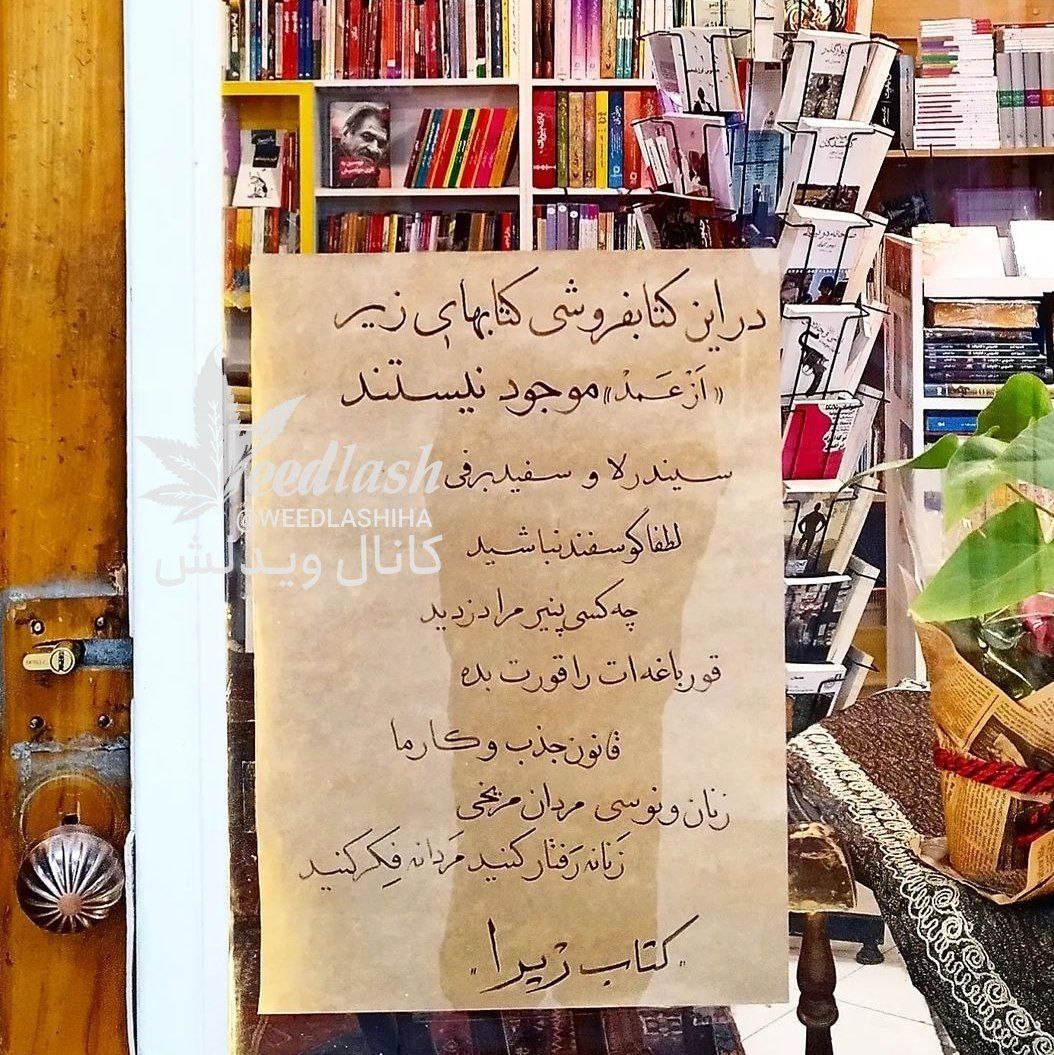 در این کتابفروشی کتابهای زیر
«اَز عَمدْ» موجود نیستند
سیندرلا و سفیدبرفی
لطفا گوسفند نباشید
چه کسی پنیر مرا دزدید
قورباغه ات را قورت بده
قانون جذب و کارما
زنان ونوسی مردان مریخی
زَنانه رَفتار کنید مَردانه فِکر کنید
"کتاب ریرا"
Weedlash
@WEEDLASHIHA
کانال ویدلش